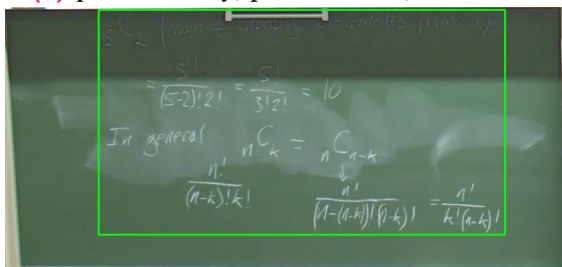 5C2 (ways of choosing 2 elements from 5)
= 5!/((5-2)!2!) = 5!/(3!2!) = 10
In general nCk = nCn-k
n!/((n-k)!k!) ↓ n!/((n-(n-k))!(n-k)!) = n!/(k!(n-k)!)